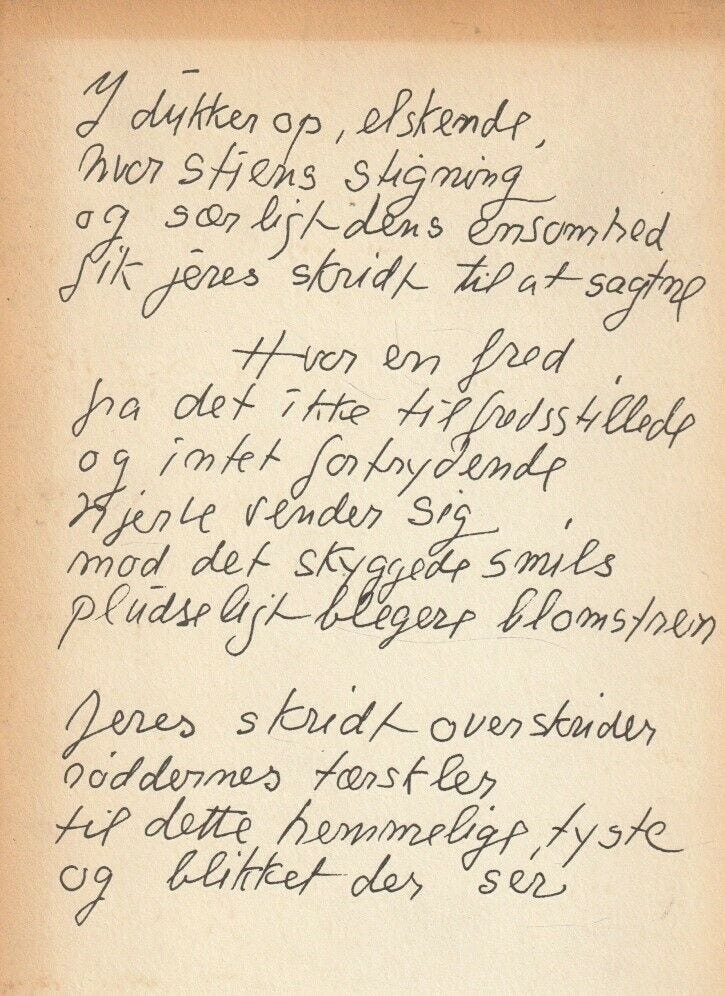 I dukker op, elskende,
hvor stiens stigning
og særligtdens ensomhed
fik jeres skridt til at sagtne
Hvor en fred
fra det ikke tilfredsstillede
og intet fortrydende
hjerte vender sig
mod det skyggede smils
pludseligt blegere blomstren
Jeres skridt overskrider
røddernes tærskler
til dette hemmelige, tyste
og blikket der ser